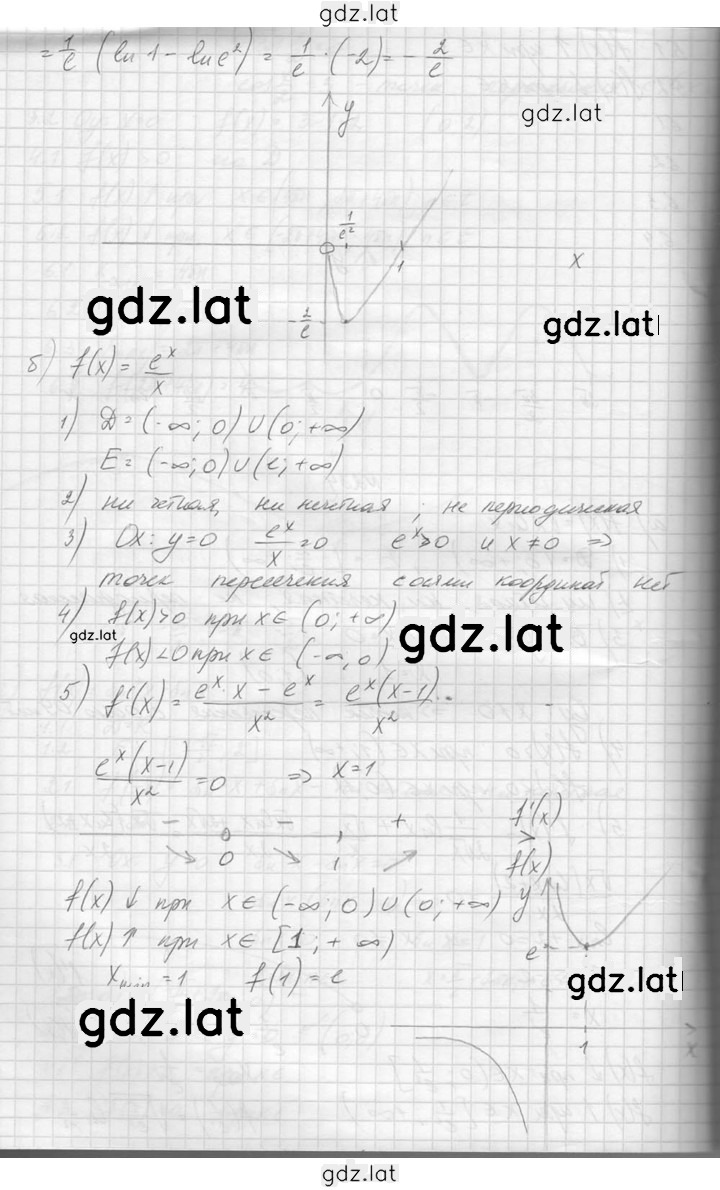 gdz.lat
= 1/e (ln 1 - ln e²) = 1/e · (-2) = - 2/e
y
gdz.lat
1/e²
1
x
gdz.lat
gdz.lat
- 2/e
б) f(x) = e^x/x
1) D = (-∞; 0) ∪ (0; +∞)
E = (-∞; 0) ∪ (e; +∞)
2) ни четная, ни нечетная ; не периодическая
3) Ox: y=0 e^x/x = 0 e^x>0 и x ≠ 0 ⇒
точек пересечения с осями координат нет
4) f(x)>0 при x ∈ (0; +∞)
gdz.lat
gdz.lat
f(x)<0 при x ∈ (-∞, 0)
5) f'(x) = (e^x · x - e^x)/x² = e^x(x-1)/x².
e^x(x-1)/x² = 0 ⇒ x=1
- - + f'(x)
↘ 0 ↘ 1 ↗ f(x)
f(x) ↓ при x ∈ (-∞; 0) ∪ (0; +∞)
y
f(x) ↑ при x ∈ [1; +∞)
e
x min = 1 f(1) = e
gdz.lat
gdz.lat
1
x
gdz.lat